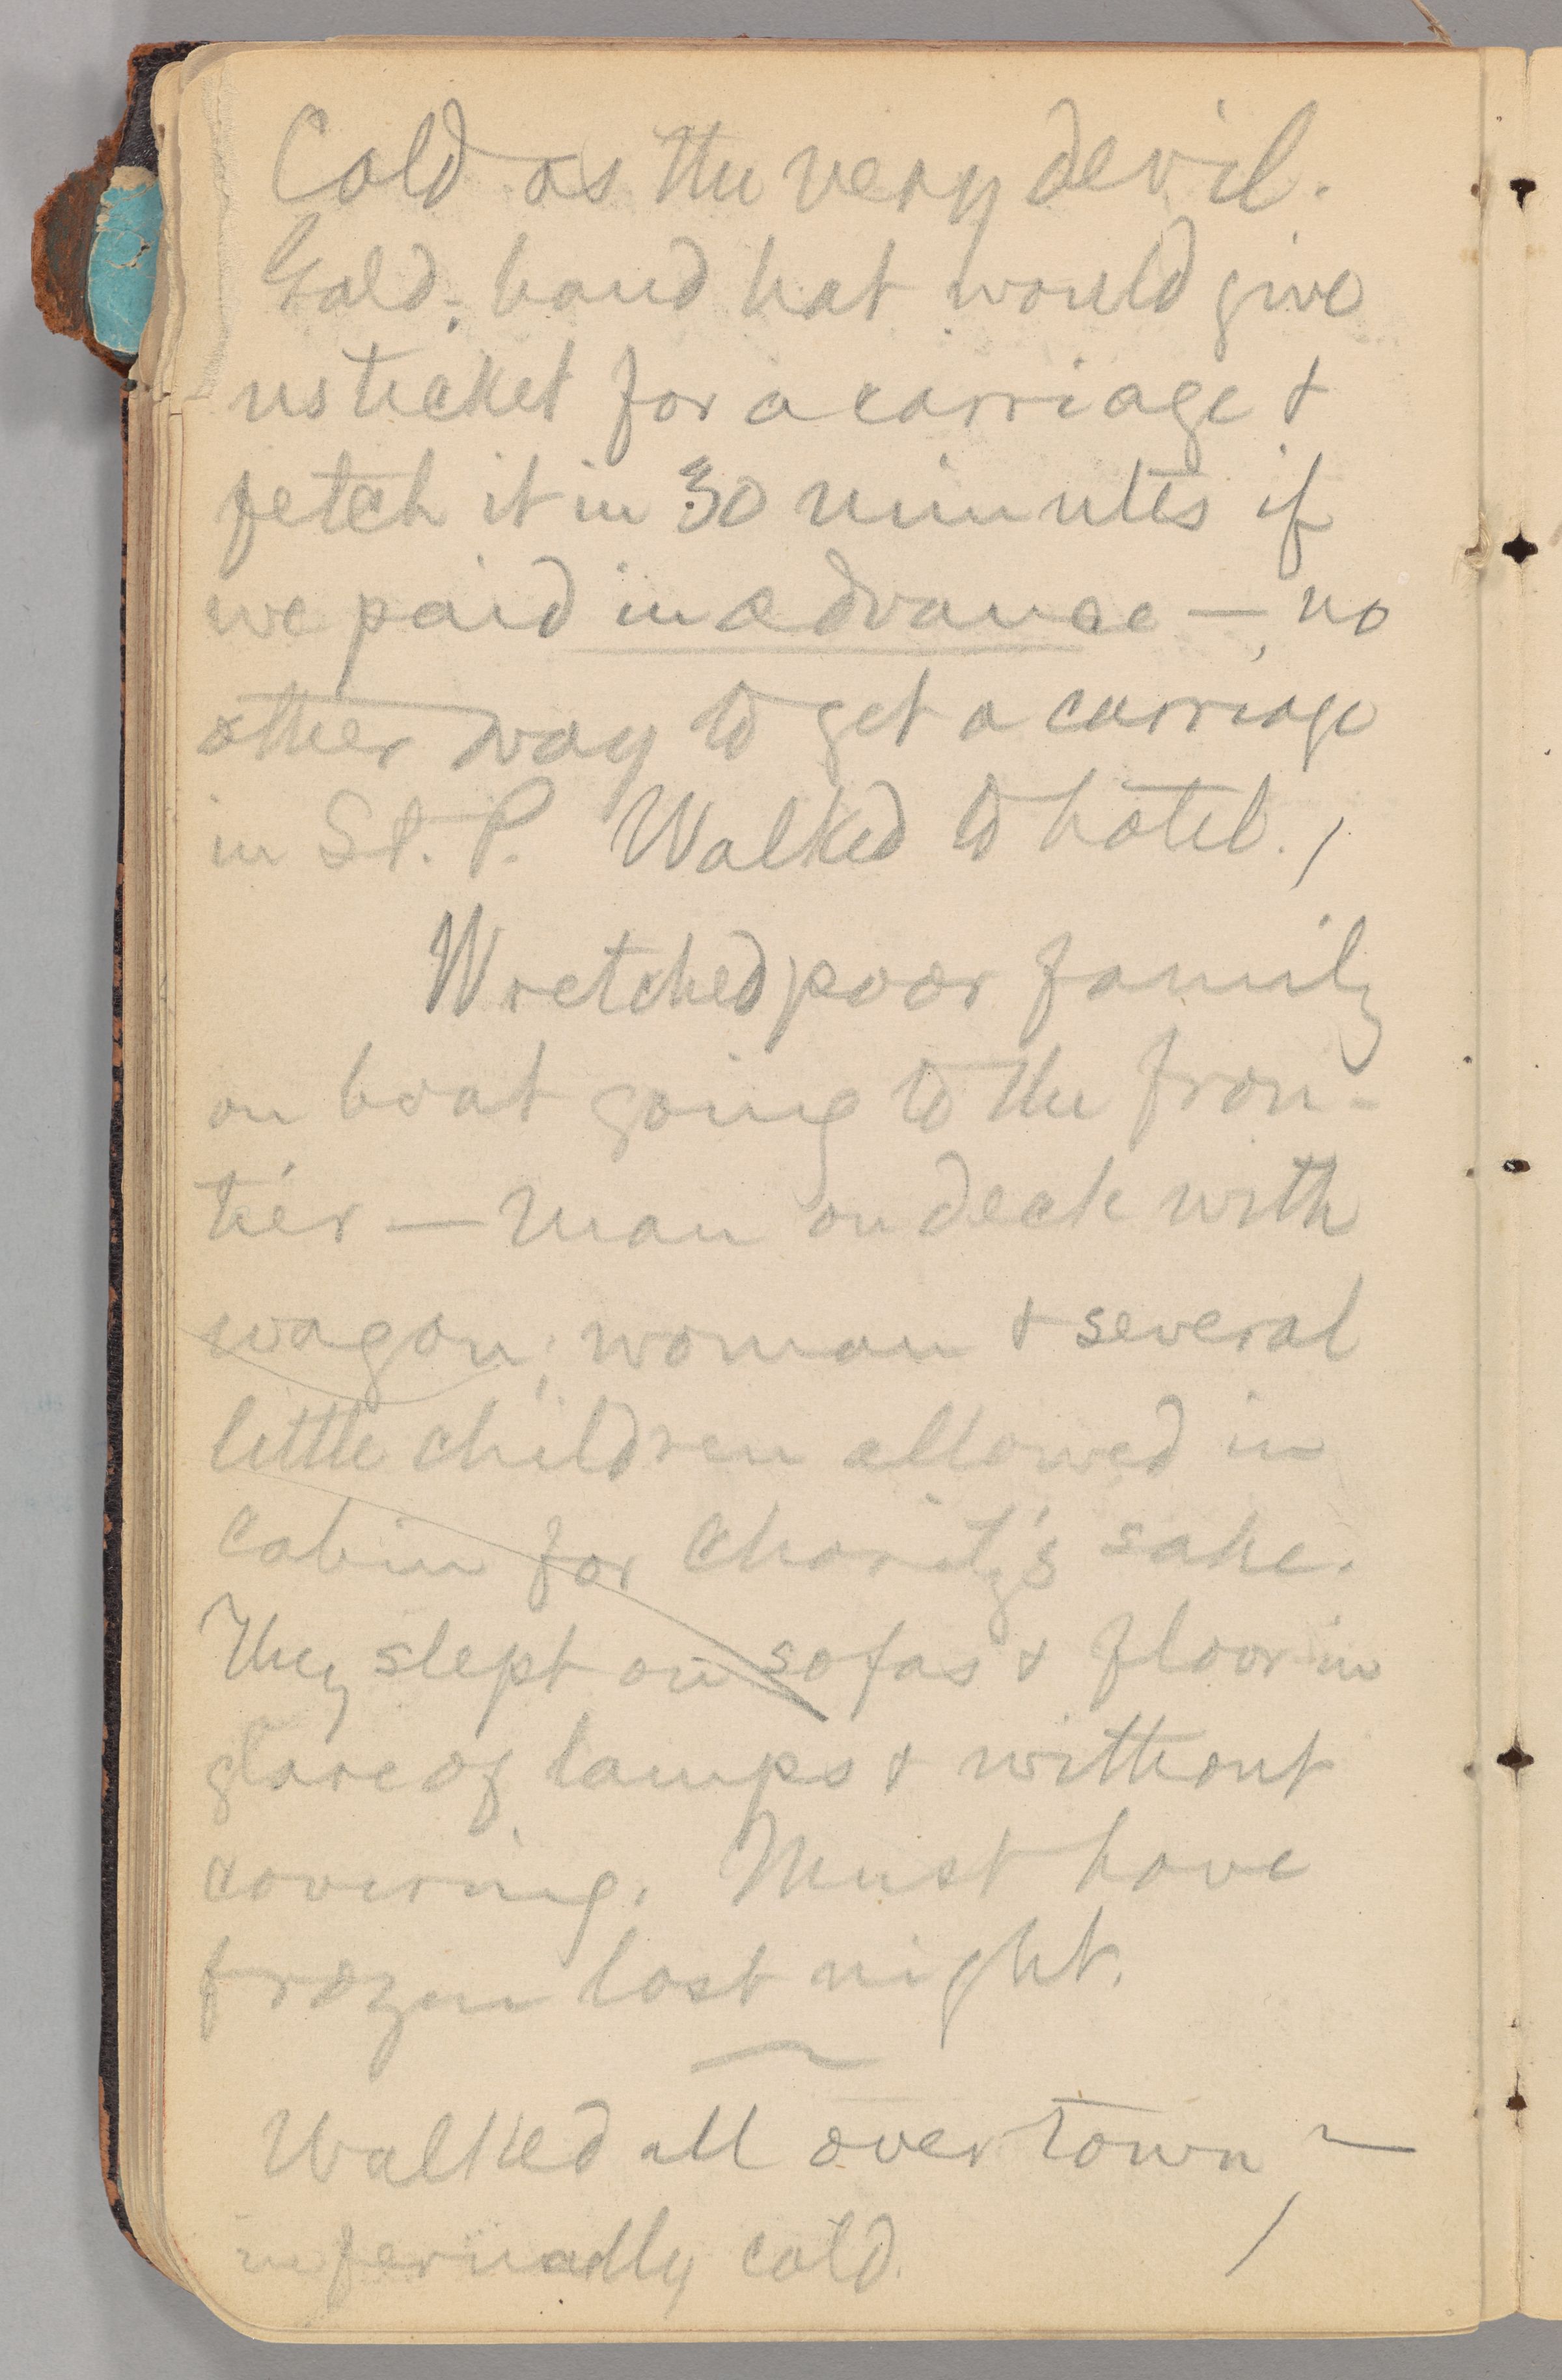 Cold as the very devil.
Gold-band hat would give
us ticket for a carriage &
fetch it in 30 minutes if
we paid in advance — no
other way to get a carriage
in St. P. Walked to hotel.
Wretched poor family
on boat going to the fron-
tier — man on deck with
wagon; woman & several
little children allowed in
cabin for charity's sake.
They slept on sofas & floor in
glare of lamps & without
covering. Must have
frozen last night.
Walked all over town —
infernally cold.